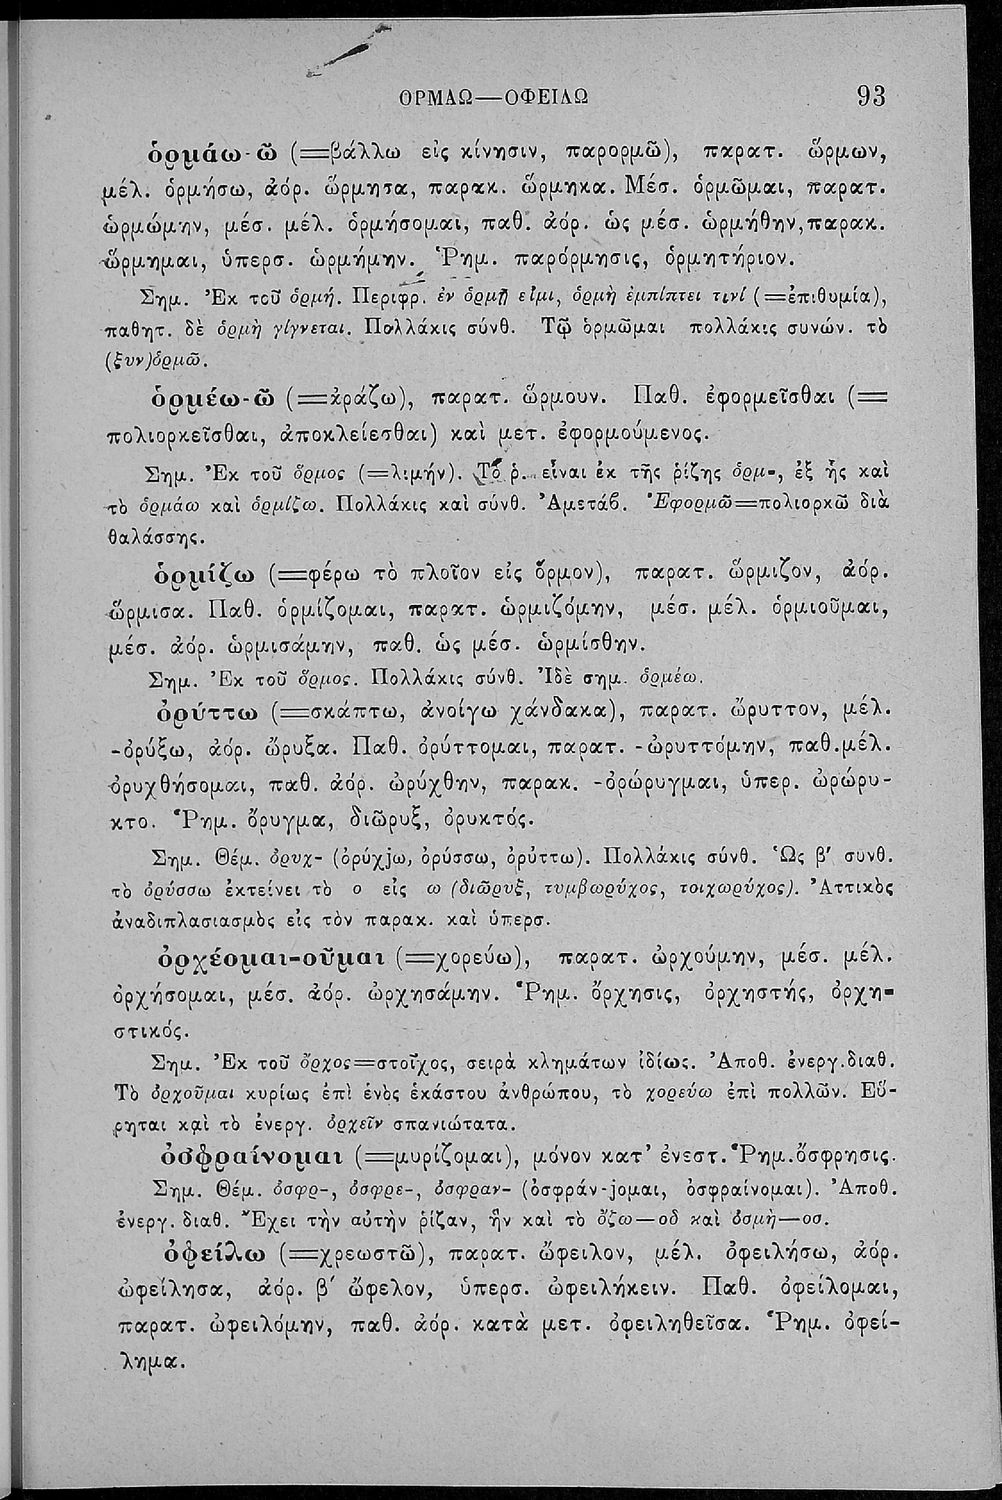 ΟΡΜΑΩ—ΟΦΕΙΛΩ 93
ὁρμάω-ῶ (=βάλλω εἰς κίνησιν, παρορμῶ), παρατ. ὥρμων,
μέλ. ὁρμήσω, ἀόρ. ὥρμησα, παρακ. ὥρμηκα. Μέσ. ὁρμῶμαι, παρατ.
ὡρμώμην, μέσ. μέλ. ὁρμήσομαι, παθ. ἀόρ. ὡς μέσ. ὡρμήθην, παρακ.
ὥρμημαι, ὑπερσ. ὡρμήμην. Ῥημ. παρόρμησις, ὁρμητήριον.
Σημ. Ἐκ τοῦ ὁρμή. Περιφρ. ἐν ὁρμῇ εἰμι, ὁρμὴ ἐμπίπτει τινί (=ἐπιθυμία),
παθητ. δὲ ὁρμὴ γίγνεται. Πολλάκις σύνθ. Τῷ ὁρμῶμαι πολλάκις συνών. τὸ
(ξυν)ὁρμῶ.
ὁρμέω-ῶ (=ἀράζω), παρατ. ὥρμουν. Παθ. ἐφορμεῖσθαι (=
πολιορκεῖσθαι, ἀποκλείεσθαι) καὶ μετ. ἐφορμούμενος.
Σημ. Ἐκ τοῦ ὅρμος (=λιμήν). Τὸ ῥ. εἶναι ἐκ τῆς ῥίζης ὁρμ-, ἐξ ἧς καὶ
τὸ ὁρμάω καὶ ὁρμίζω. Πολλάκις καὶ σύνθ. Ἀμετάβ. Ἐφορμῶ=πολιορκῶ διὰ
θαλάσσης.
ὁρμίζω (=φέρω τὸ πλοῖον εἰς ὅρμον), παρατ. ὥρμιζον, ἀόρ.
ὥρμισα. Παθ. ὁρμίζομαι, παρατ. ὡρμιζόμην, μέσ. μέλ. ὁρμιοῦμαι,
μέσ. ἀόρ. ὡρμισάμην, παθ. ὡς μέσ. ὡρμίσθην.
Σημ. Ἐκ τοῦ ὅρμος. Πολλάκις σύνθ. Ἰδὲ σημ. ὁρμέω.
ὀρύττω (=σκάπτω, ἀνοίγω χάνδακα), παρατ. ὤρυττον, μέλ.
-ὀρύξω, ἀόρ. ὤρυξα. Παθ. ὀρύττομαι, παρατ. -ὠρυττόμην, παθ.μέλ.
-ὀρυχθήσομαι, παθ. ἀόρ. ὠρύχθην, παρακ. -ὀρώρυγμαι, ὑπερ. ὠρώρυ-
κτο. Ῥημ. ὄρυγμα, διῶρυξ, ὀρυκτός.
Σημ. Θέμ. ὀρυχ- (ὀρύχjω, ὀρύσσω, ὀρύττω). Πολλάκις σύνθ. Ὡς β′ συνθ.
τὸ ὀρύσσω ἐκτείνει τὸ ο εἰς ω (διῶρυξ, τυμβωρύχος, τοιχωρύχος). Ἀττικὸς
ἀναδιπλασιασμὸς εἰς τὸν παρακ. καὶ ὑπερσ.
ὀρχέομαι-οῦμαι (=χορεύω), παρατ. ὠρχούμην, μέσ. μέλ.
ὀρχήσομαι, μέσ. ἀόρ. ὠρχησάμην. Ῥημ. ὄρχησις, ὀρχηστής, ὀρχη-
στικός.
Σημ. Ἐκ τοῦ ὄρχος=στοῖχος, σειρὰ κλημάτων ἰδίως. Ἀποθ. ἐνεργ.διαθ.
Τὸ ὀρχοῦμαι κυρίως ἐπὶ ἑνὸς ἑκάστου ἀνθρώπου, τὸ χορεύω ἐπὶ πολλῶν. Εὕ-
ρηται καὶ τὸ ἐνεργ. ὀρχεῖν σπανιώτατα.
ὀσφραίνομαι (=μυρίζομαι), μόνον κατ’ ἐνεστ. Ῥημ. ὄσφρησις.
Σημ. Θέμ. ὀσφρ-, ὀσφρε-, ὀσφραν- (ὀσφράν-jομαι, ὀσφραίνομαι). Ἀποθ.
ἐνεργ. διαθ. Ἔχει τὴν αὐτὴν ῥίζαν, ἣν καὶ τὸ ὄζω—οδ καὶ ὀσμὴ—οσ.
ὀφείλω (=χρεωστῶ), παρατ. ὤφειλον, μέλ. ὀφειλήσω, ἀόρ.
ὠφείλησα, ἀόρ. β′ ὤφελον, ὑπερσ. ὠφειλήκειν. Παθ. ὀφείλομαι,
παρατ. ὠφειλόμην, παθ. ἀόρ. κατὰ μετ. ὀφειληθεῖσα. Ῥημ. ὀφεί-
λημα.